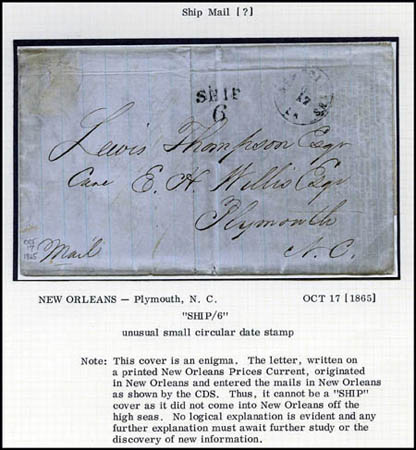 Ship Mail [?]
SHIP
6
17
LA
Lewis Thompson Esqr
Care E. H. Willis Esqr
Plymouth
N.C.
Oct
17
1865
Mail
NEW ORLEANS — Plymouth, N. C. OCT 17 [1865]
"SHIP/6"
unusual small circular date stamp
Note: This cover is an enigma. The letter, written on
a printed New Orleans Prices Current, originated
in New Orleans and entered the mails in New Orleans
as shown by the CDS. Thus, it cannot be a "SHIP"
cover as it did not come into New Orleans off the
high seas. No logical explanation is evident and any
further explanation must await further study or the
discovery of new information.